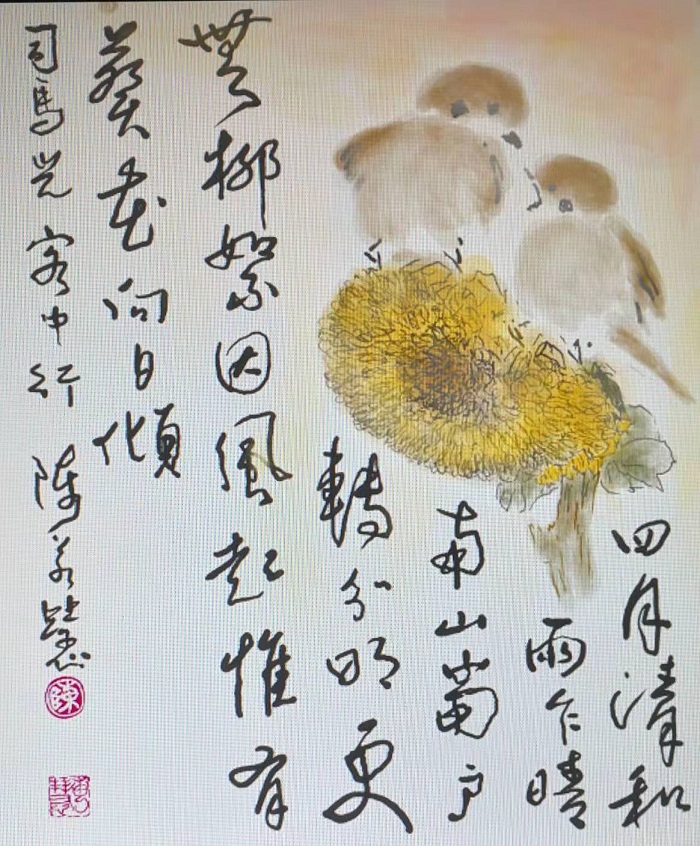 四月清和
雨乍晴
南山當戶
轉分明更
無柳絮因風起惟有
葵花向日傾
司馬光 客中行 陳
陳